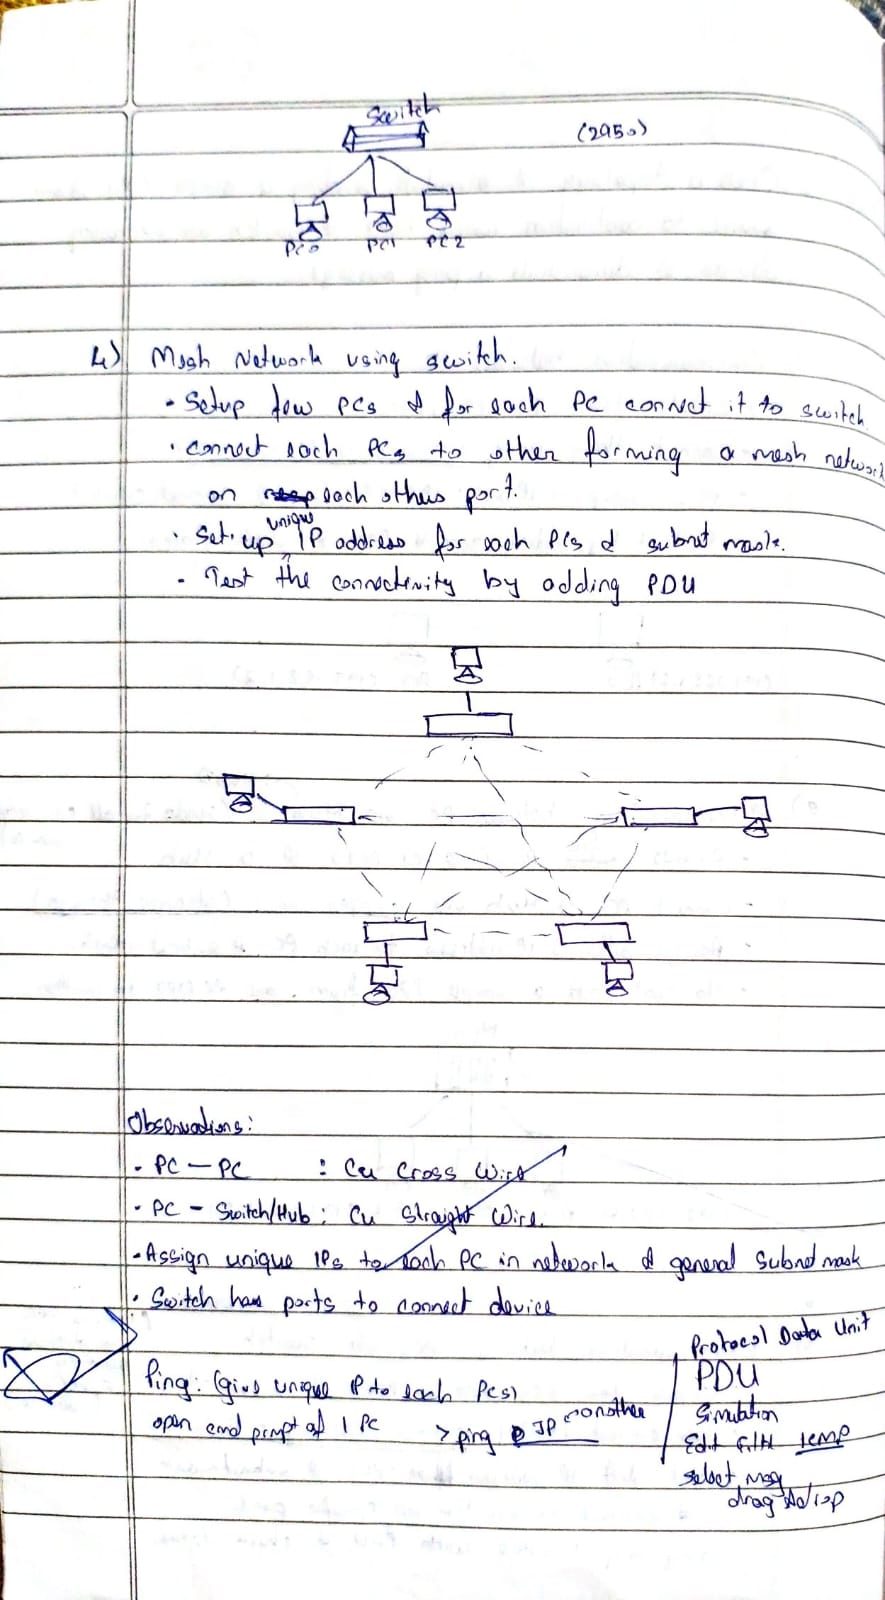 Switch
(2950)
PC0 PC1 PC2
4) Mesh Network using switch.
• Setup few PCs & for each PC connect it to switch
• connect each PCs to other forming a mesh network
on each others port.
• Set-up unique IP address for each PCs & subnet mask.
• Test the connectivity by adding PDU
Observations:
• PC - PC : Cu Cross Wire
• PC - Switch/Hub : Cu Straight Wire.
• Assign unique IPs to each PC in network & general Subnet mask
• Switch has ports to connect device
Ping: (give unique IP to each PCs)
open cmd prompt of 1 PC > ping IP on other
Protocol Data Unit
PDU
Simulation
Edit Filt ICMP
select msg
drag